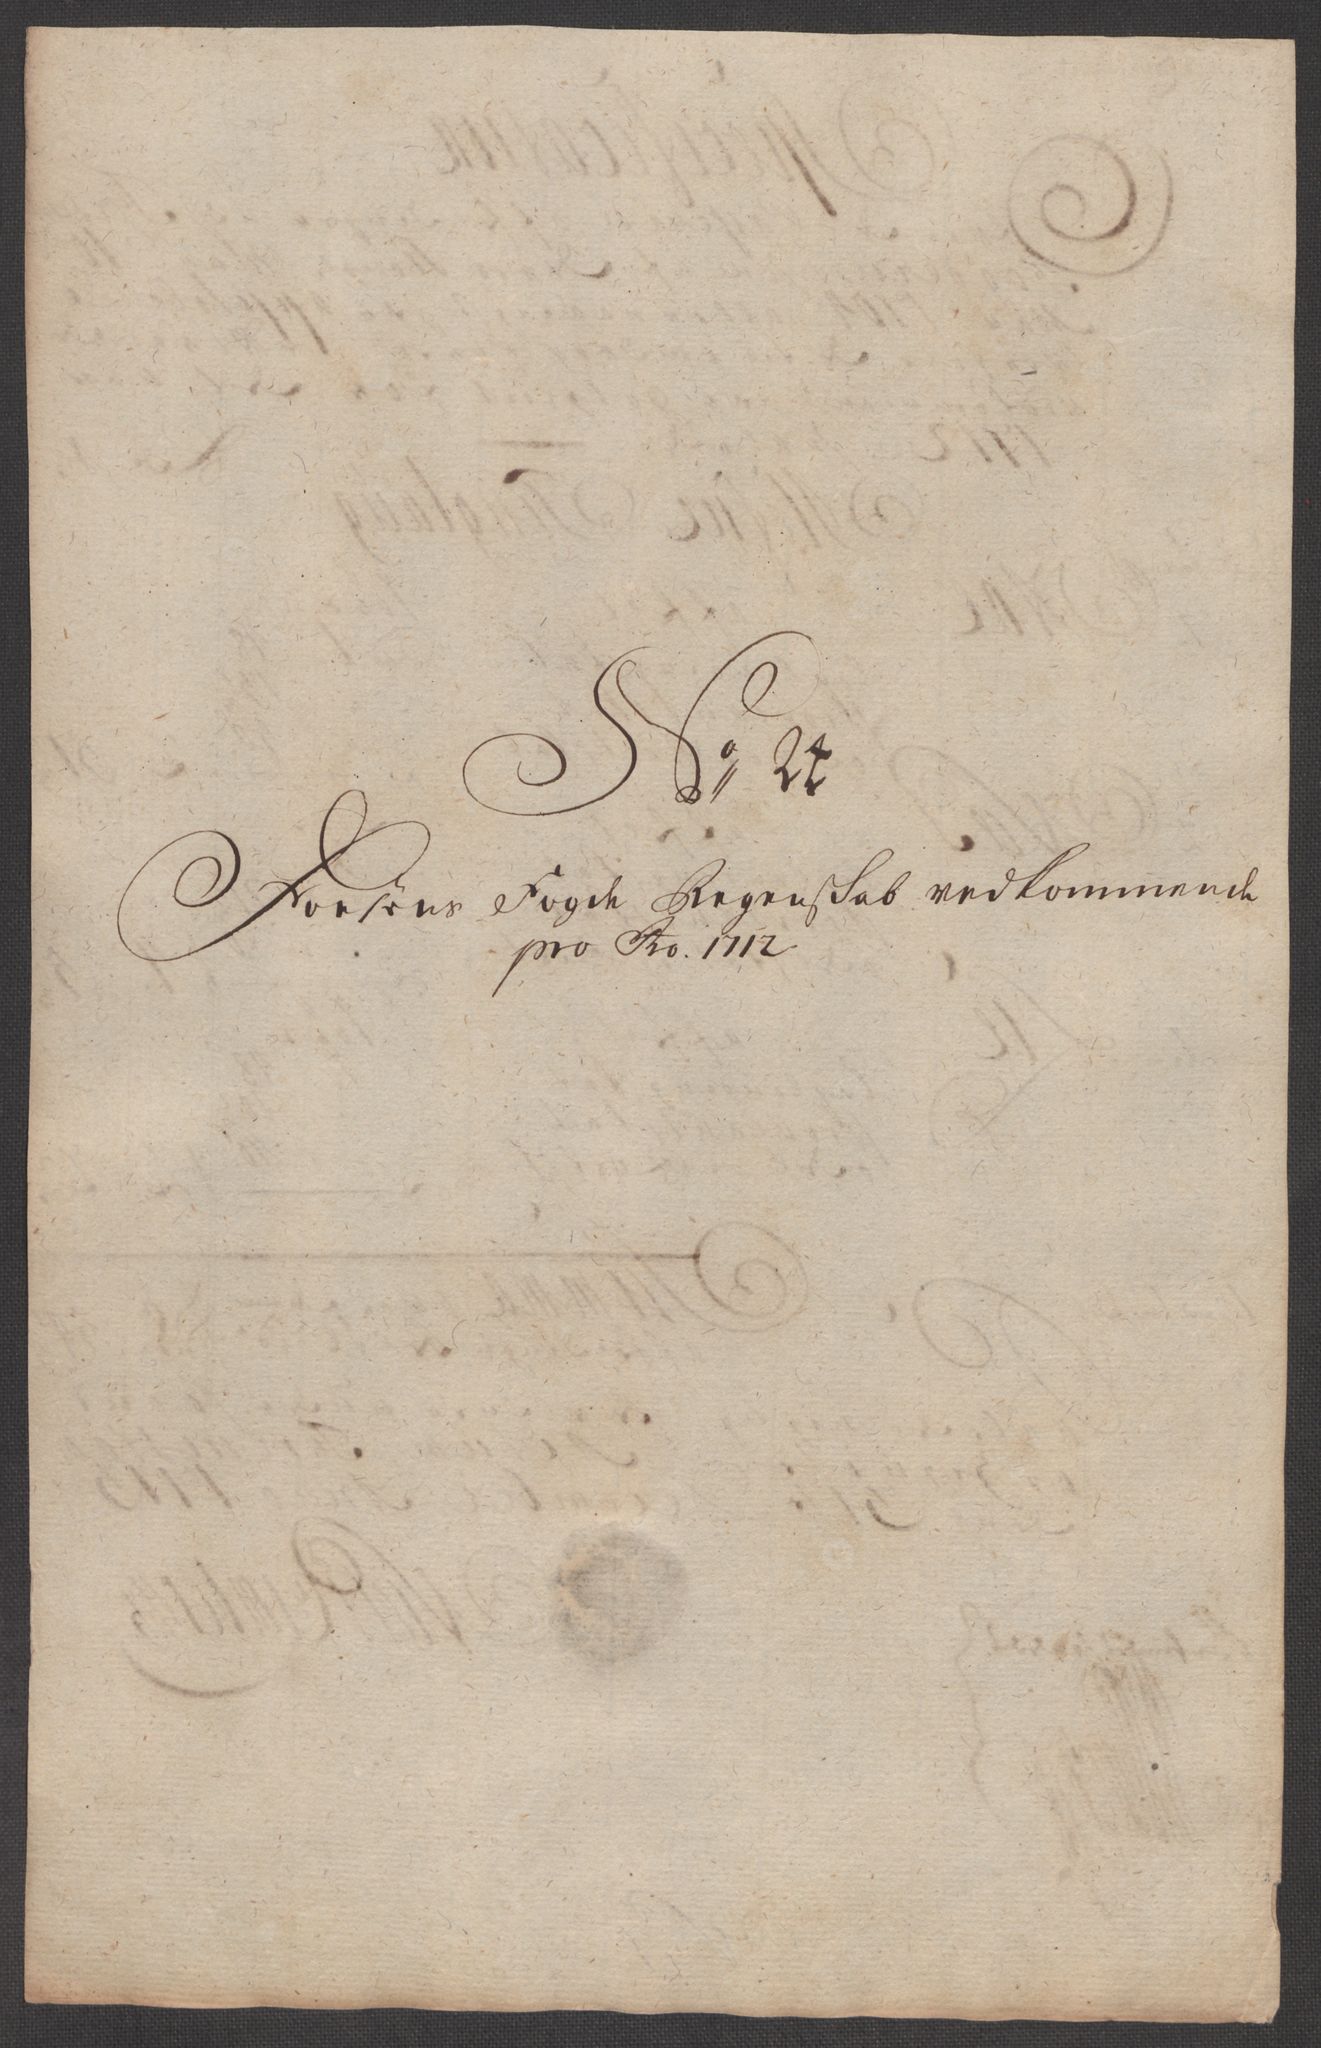 No: 24
Foesøns Fogde Regenskab vedkommende
pro Ao. 1712